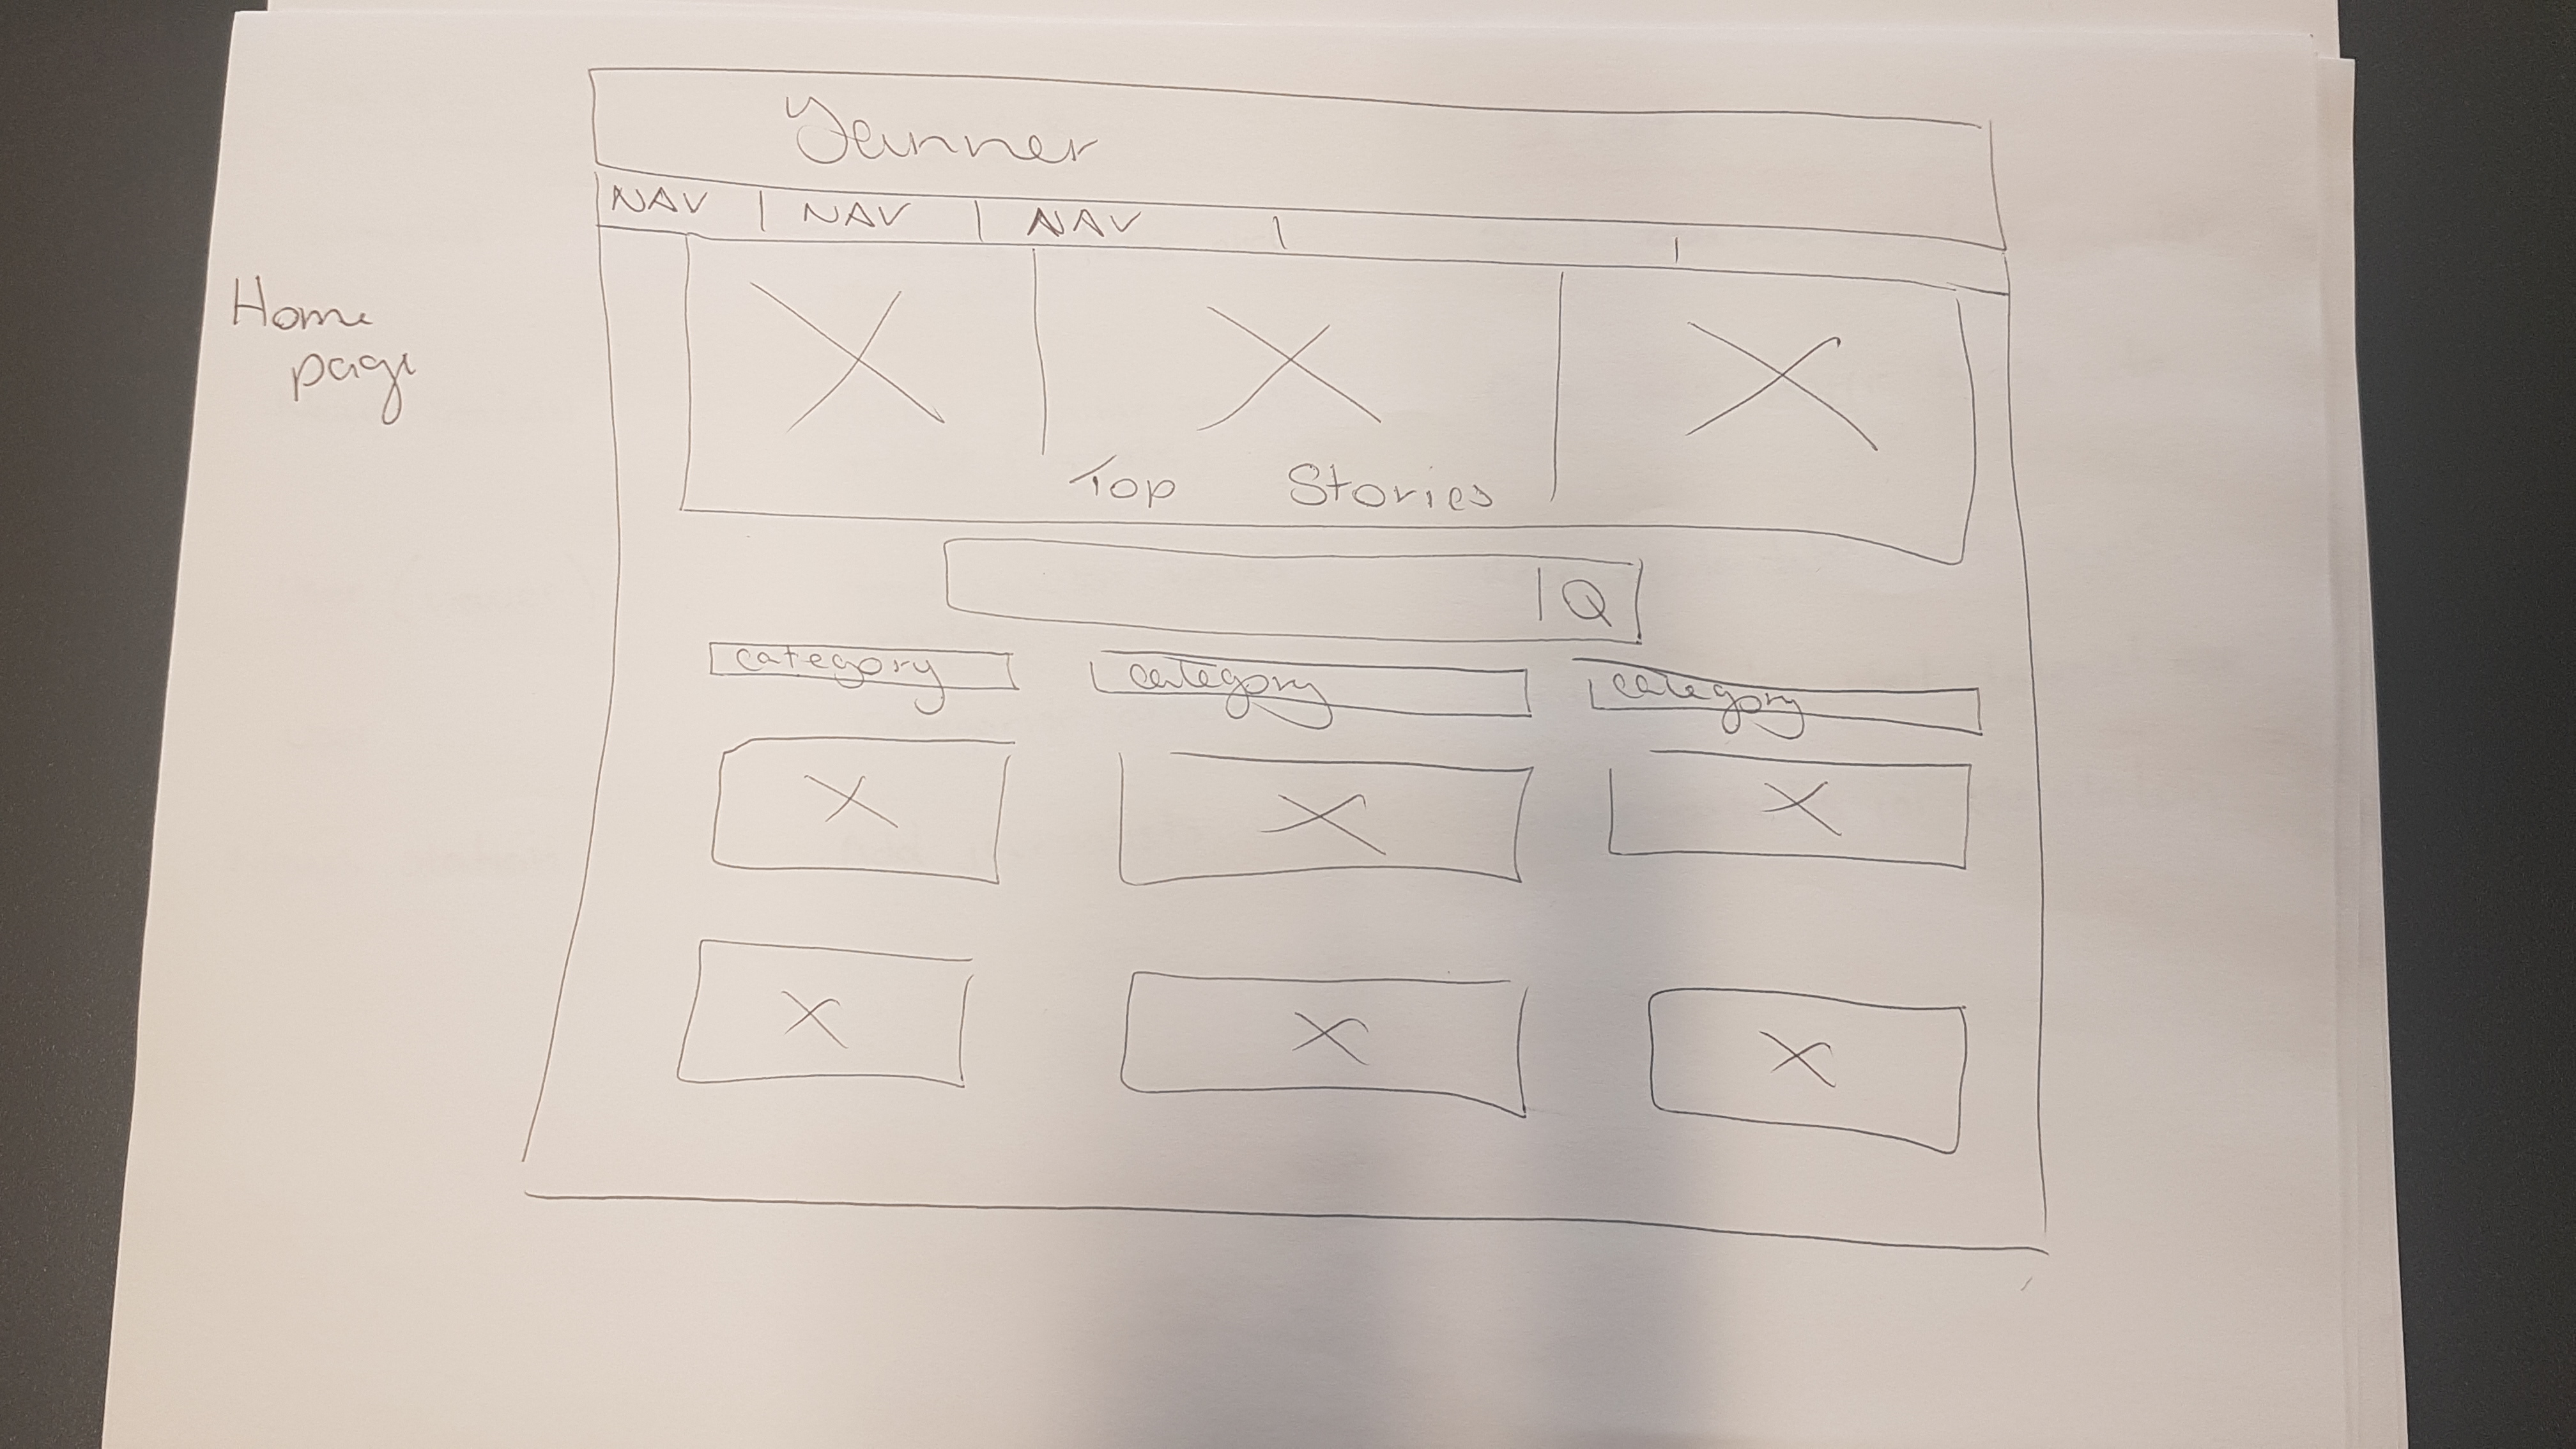 Home
page
Yanner
NAV | NAV | NAV | |
Top Stories
category category category